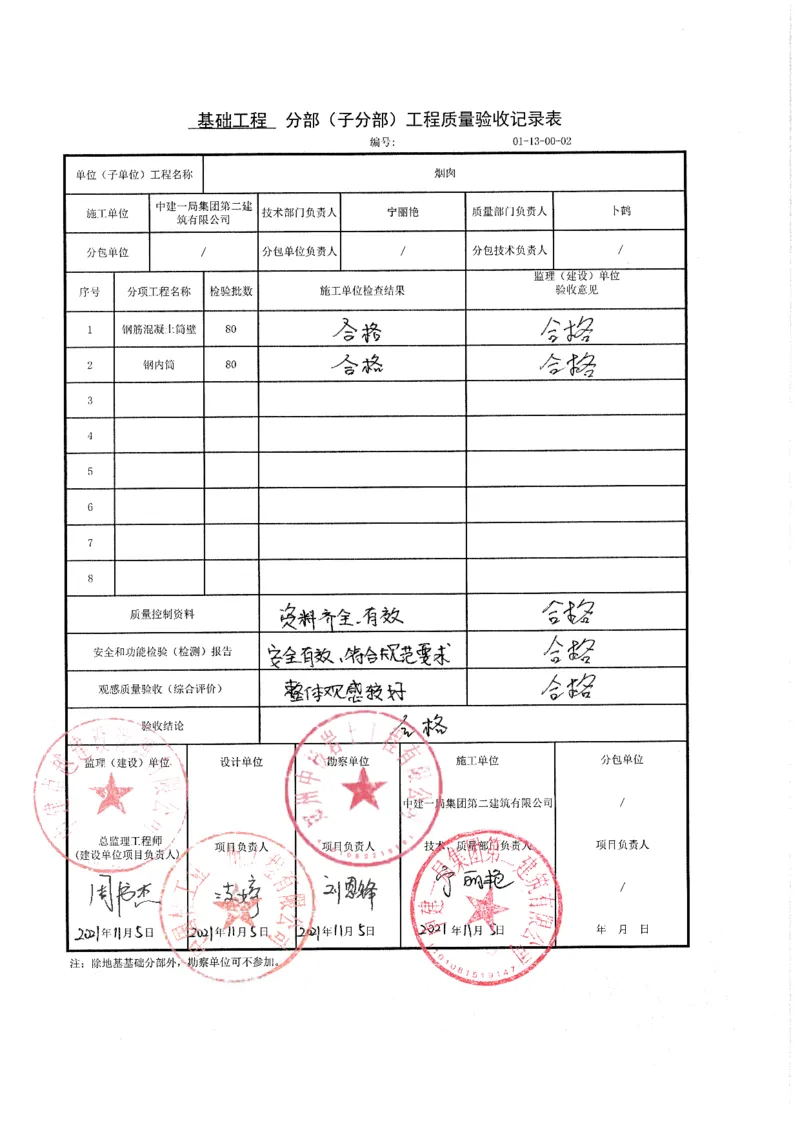 基础工程 分部（子分部）工程质量验收记录表
编号: 01-13-00-02
单位（子单位）工程名称 烟囱
施工单位 中建一局集团第二建筑有限公司 技术部门负责人 宁丽艳 质量部门负责人 卜鹤
分包单位 / 分包单位负责人 / 分包技术负责人 /
序号 分项工程名称 检验批数 施工单位检查结果 监理（建设）单位验收意见
1 钢筋混凝土筒壁 80 合格 合格
2 钢内筒 80 合格 合格
3
4
5
6
7
8
质量控制资料 资料齐全、有效 合格
安全和功能检验（检测）报告 安全有效、符合规范要求 合格
观感质量验收（综合评价） 整体观感较好 合格
验收结论 合格
监理（建设）单位 设计单位 勘察单位 施工单位 分包单位
中建一局集团第二建筑有限公司 /
总监理工程师
(建设单位项目负责人) 项目负责人 项目负责人 技术、质量部门负责人 项目负责人
刘恩锋 宁丽艳 /
2021年11月5日 2021年11月5日 2021年11月5日 2021年11月5日 年 月 日
注：除地基基础分部外，勘察单位可不参加。